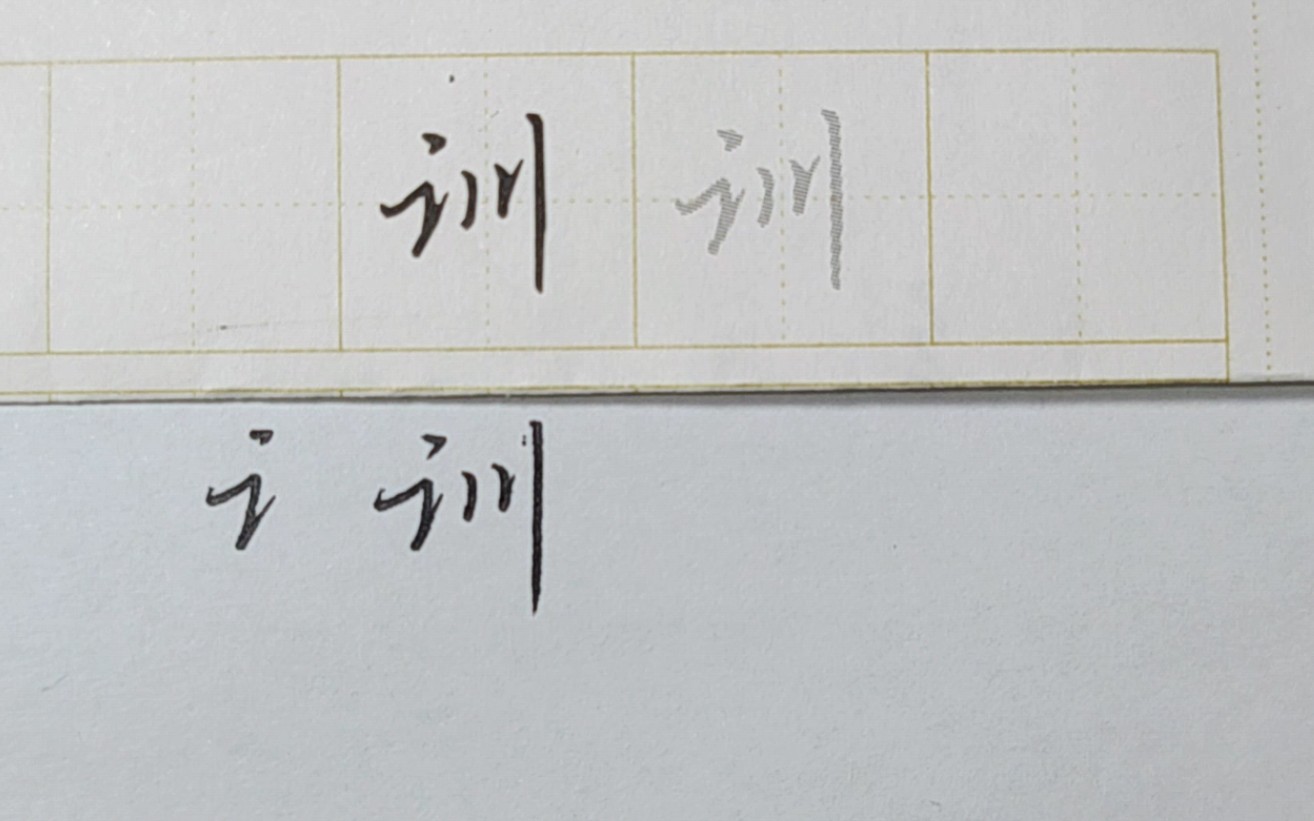 训 训
讠 训